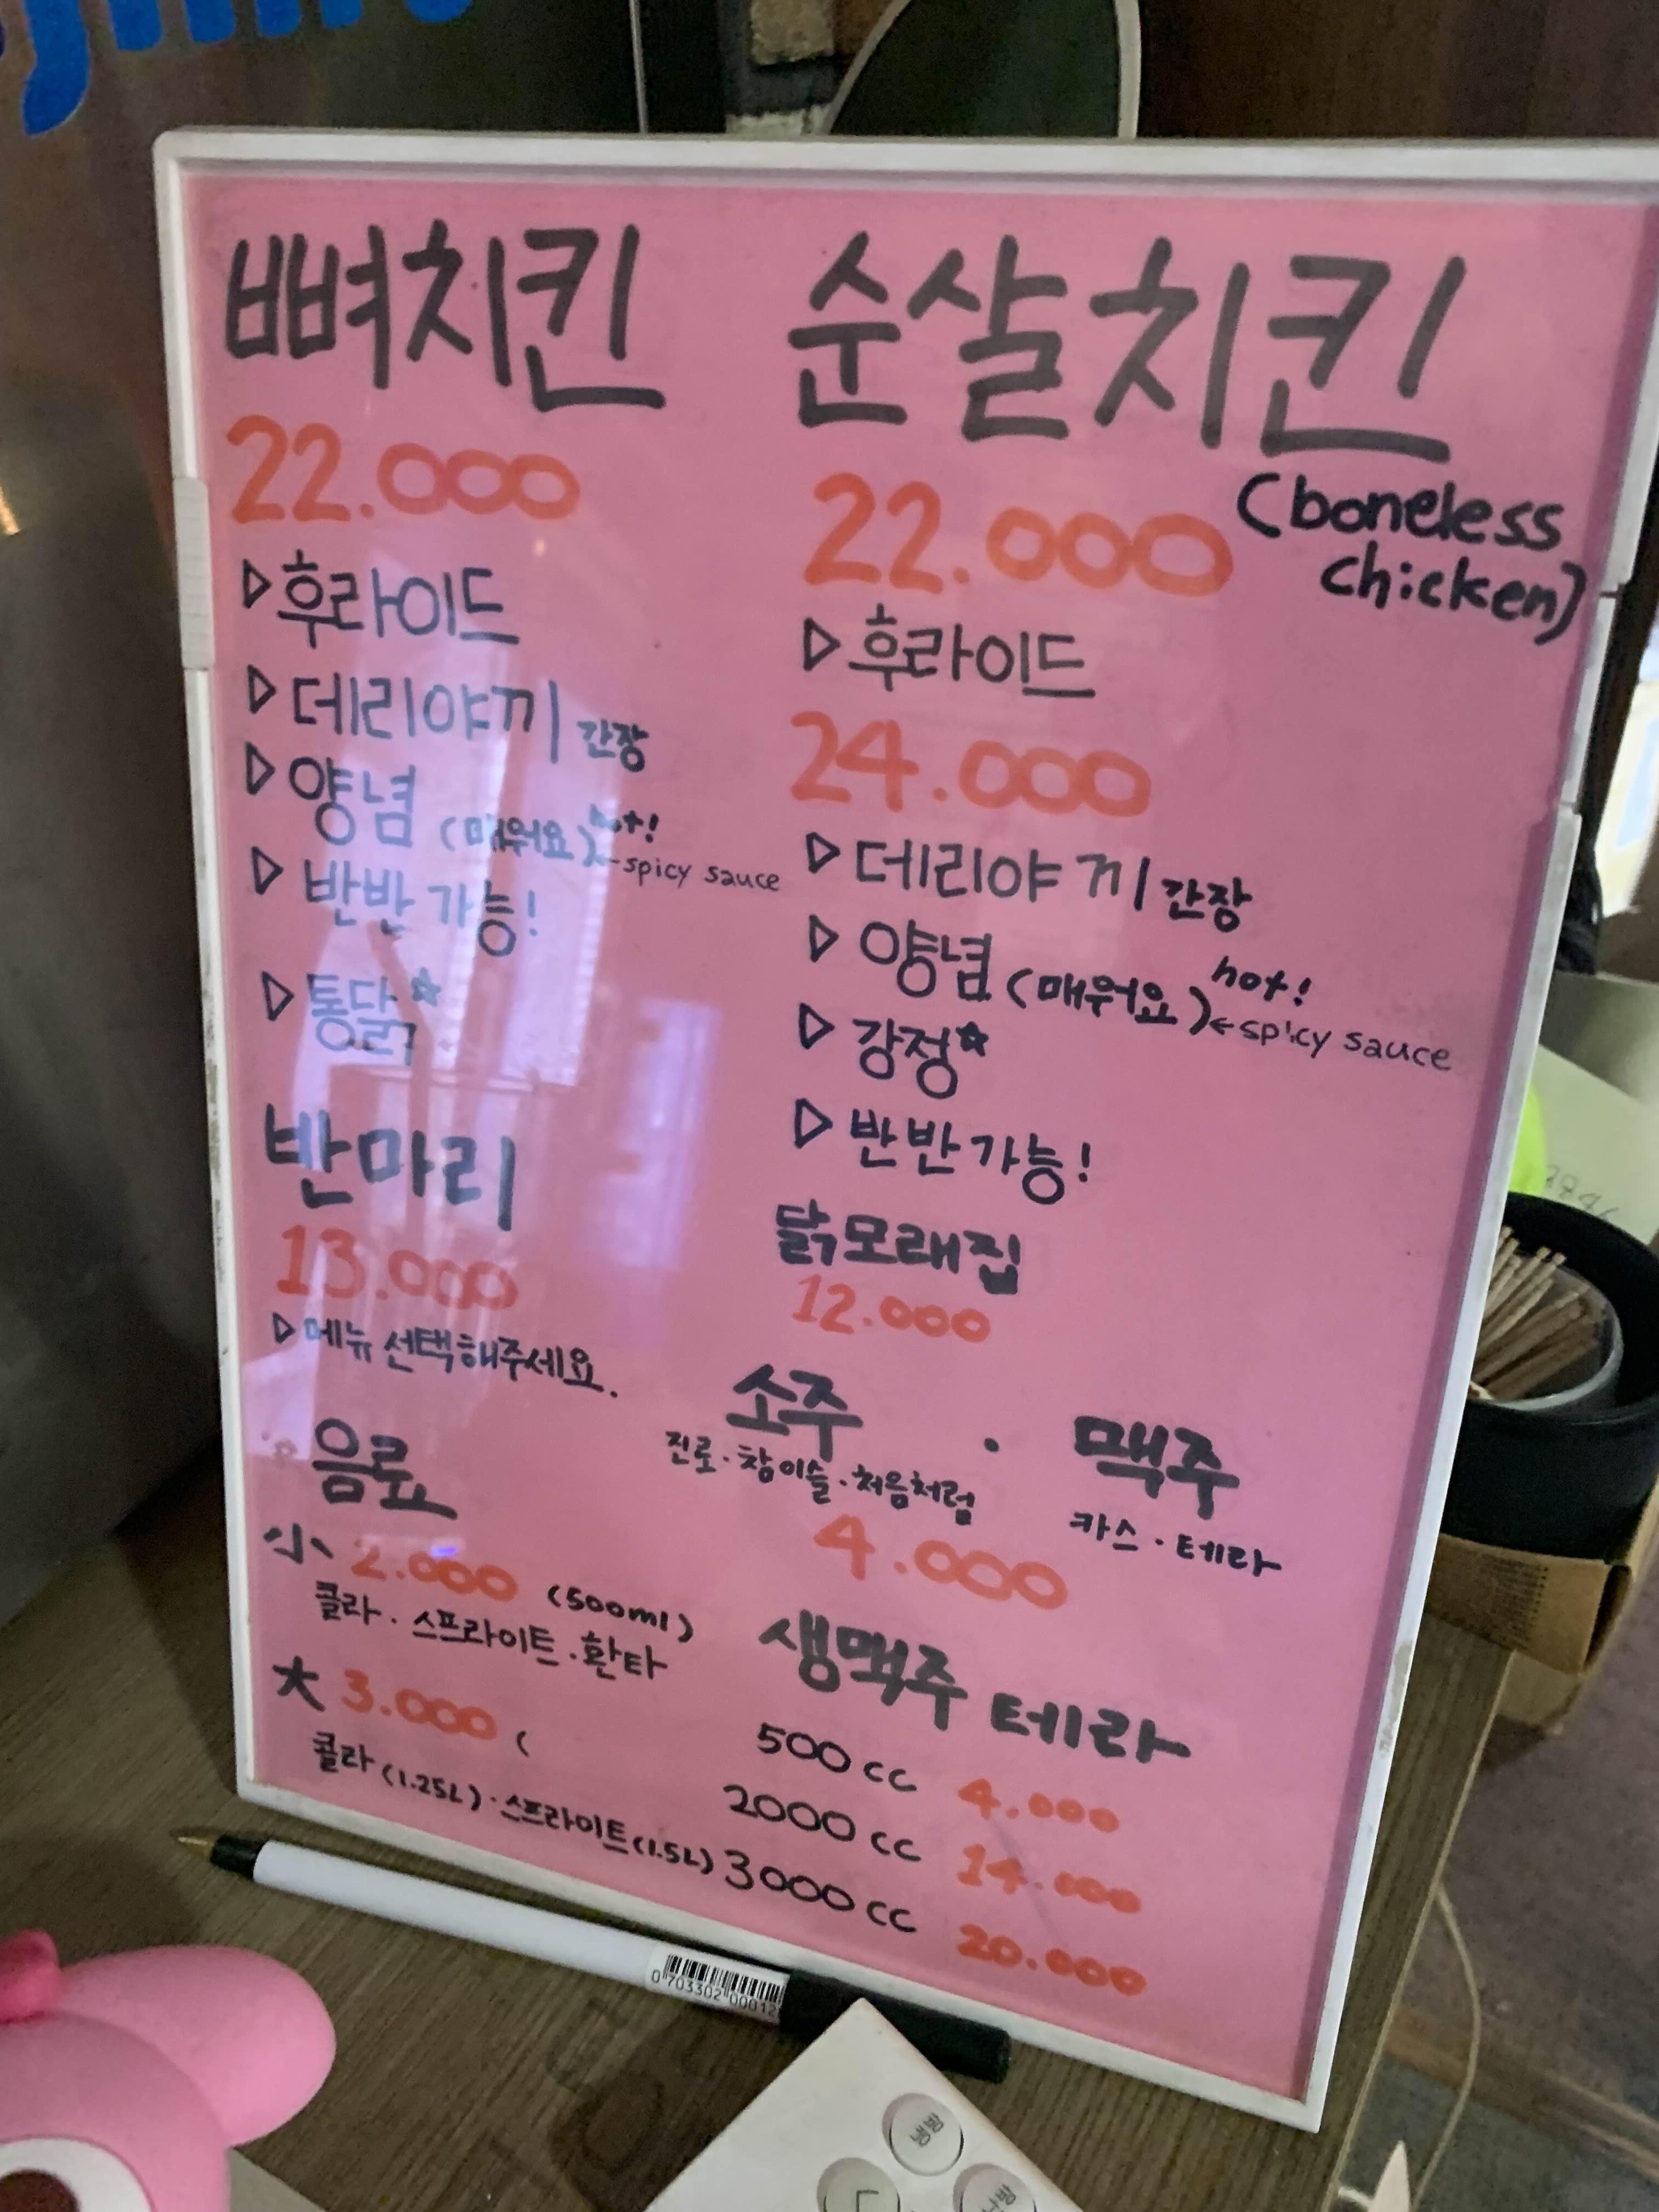 뼈치킨
22.000
▷후라이드
▷데리야끼 간장
▷양념 (매워요) hot!
←spicy sauce
▷반반 가능!
▷통닭☆
반마리
13.000
▷메뉴 선택해주세요.
음료
小 2.000 (500ml)
콜라 · 스프라이트 · 환타
大 3.000 (
콜라 (1.25L) · 스프라이트 (1.5L)
순살치킨
(boneless
chicken)
22.000
▷후라이드
24.000
▷데리야끼 간장
▷양념 (매워요) hot!
←spicy sauce
▷강정☆
▷반반 가능!
닭모래집
12.000
소주 · 맥주
진로 · 참이슬 · 처음처럼
카스 · 테라
4.000
생맥주 테라
500 cc 4.000
2000 cc 14.000
3000 cc 20.000